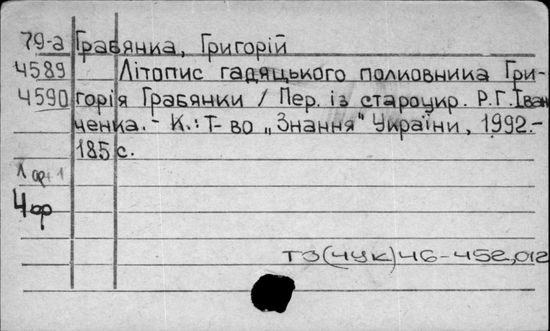 79-а Грабянка, Григорій
4589 Літопис гадяцького полковника Гри-
4590 горія Грабянки / Пер. із староукр. Р.Г.Іван
ченка. - К.: Т-во „Знання" України, 1992.-
185 с.
1 ор+1
4 ор
ТЗ(4УК)46-452,012